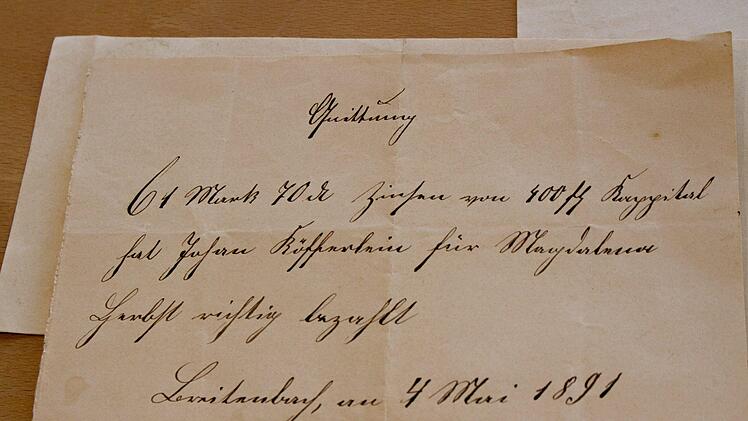 Quittung
61 Mark 70 ₰ Zinsen von 400 fl Kappital
hat Johan Köfferlein für Magdalena
Herbst richtig bezahlt
Breitenbach, an 4 Mai 1891